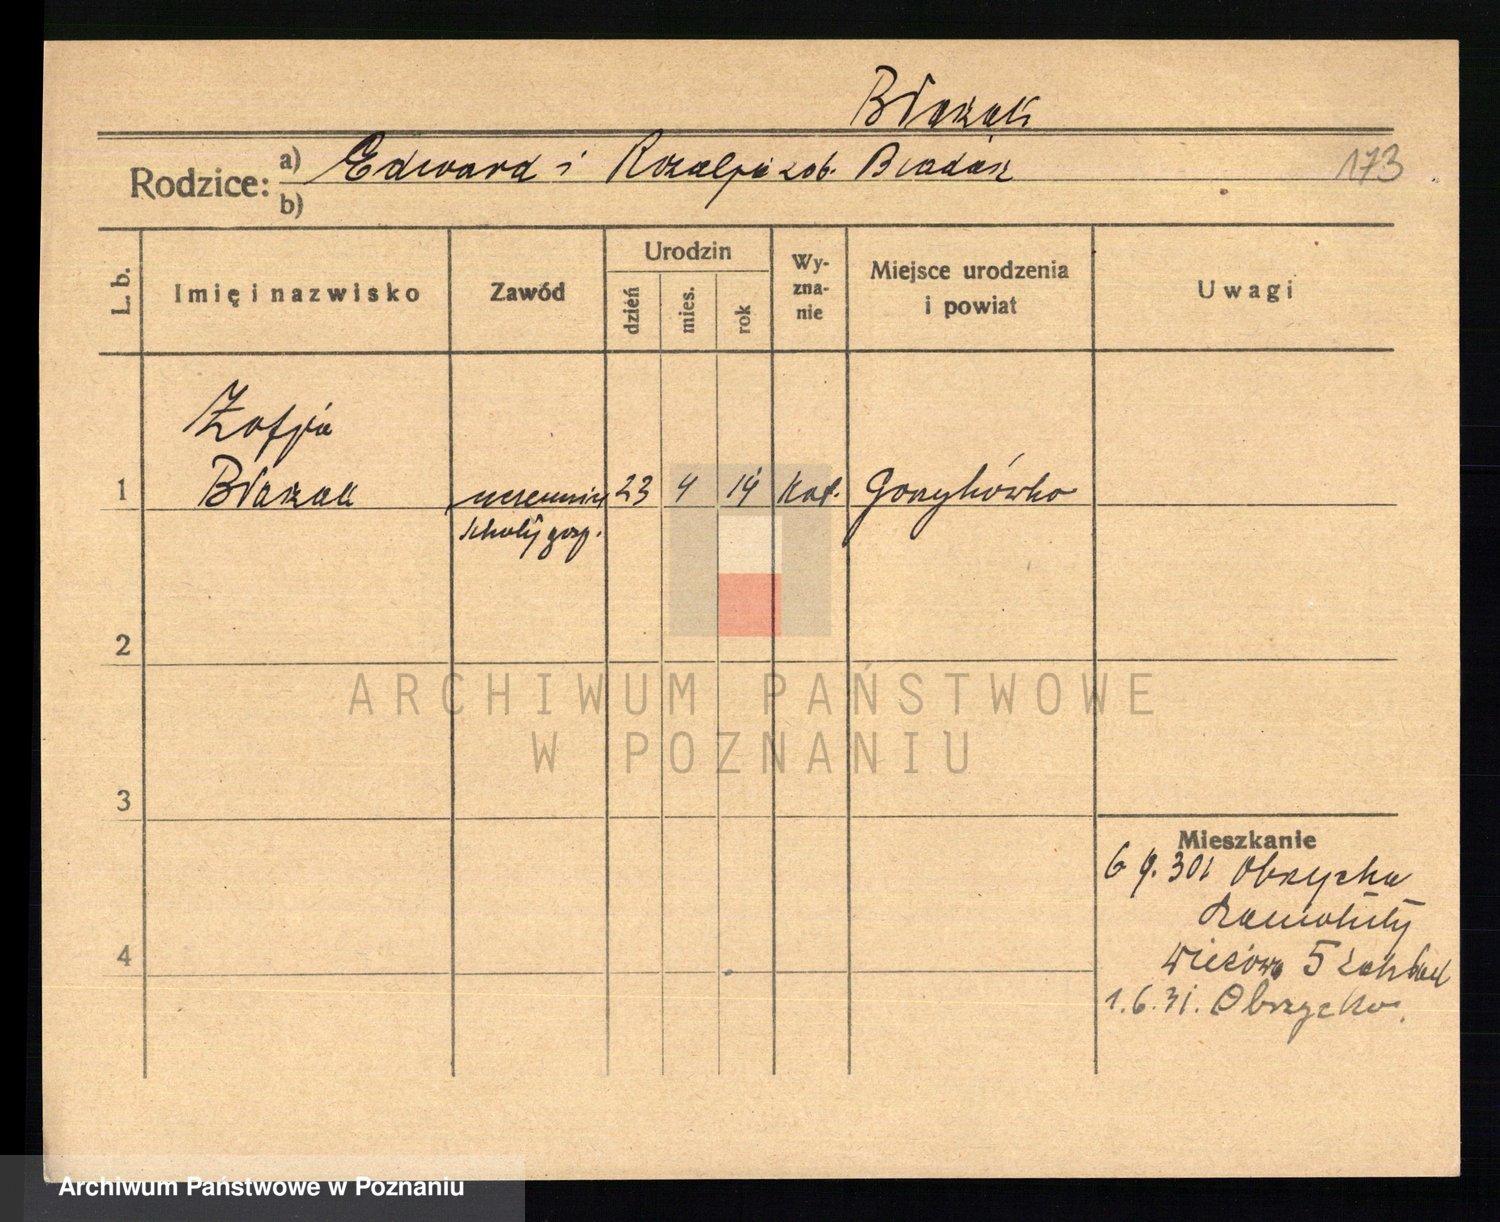 Błażak
Rodzice: a) Edward i Rozalja zob. Biadała
b)
173
L. b.
Imię i nazwisko
Zawód
Urodzin
dzień
mies.
rok
Wy-
zna-
nie
Miejsce urodzenia
i powiat
Uwagi
Zofja
1 Błażak uczennica 23 4 14 kat. Gorzykówko
szkoły gosp.
2
ARCHIWUM PAŃSTWOWE
W POZNANIU
3
Mieszkanie
6 9. 30 Obrzycko
Szamotuły
5
4
1.6.31. Obrzycko.
Archiwum Państwowe w Poznaniu